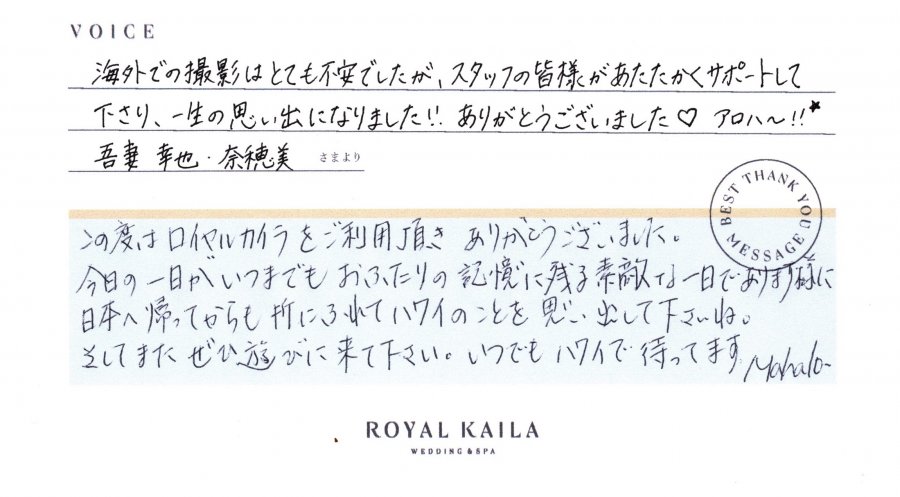 VOICE
海外での撮影はとても不安でしたが、スタッフの皆様があたたかくサポートして
下さり、一生の思い出になりました!! ありがとうございました♡ アロハ〜!!★
吾妻 幸也・奈穂美 さまより
BEST THANK YOU MESSAGE
この度はロイヤルカイラをご利用頂き ありがとうございました。
今日の一日が、いつまでも おふたりの 記憶に残る素敵な一日であります様に
日本へ帰ってからも 折にふれてハワイのことを 思い出して下さいね。
そしてまた ぜひ遊びに来て下さい。いつでも ハワイで 待ってます Mahalo~
ROYAL KAILA
WEDDING & SPA